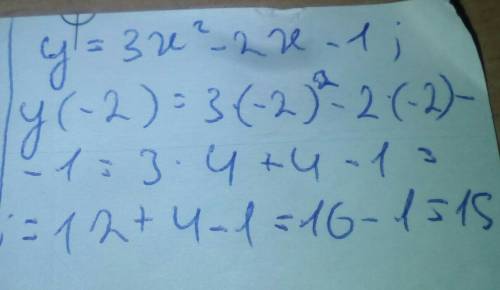 y = 3x² - 2x - 1;
y(-2) = 3·(-2)² - 2·(-2) -
- 1 = 3·4 + 4 - 1 =
= 12 + 4 - 1 = 16 - 1 = 15